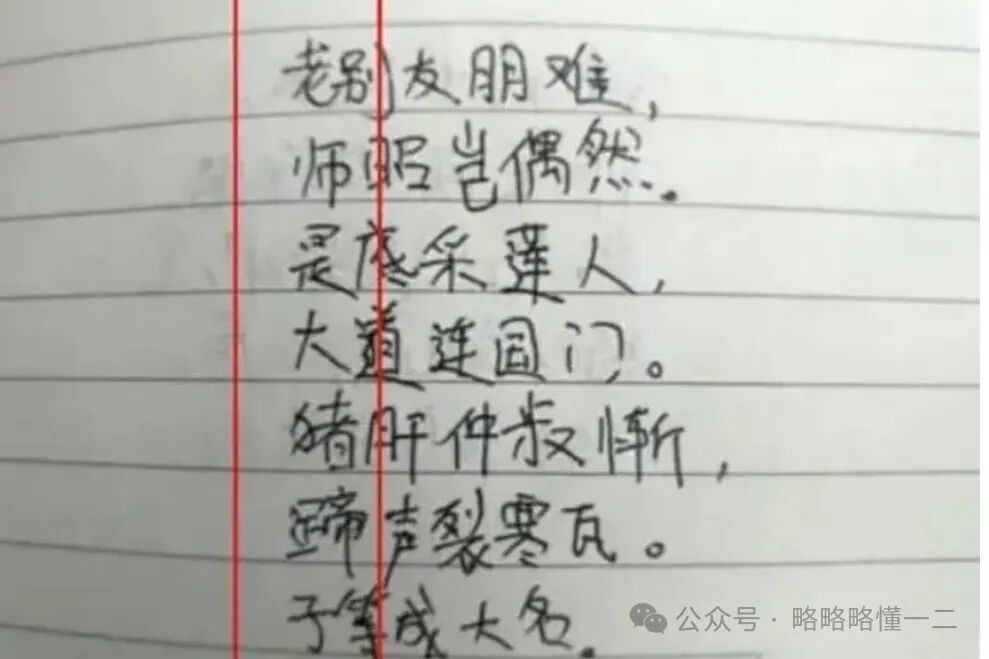 老别友朋难，
师昭岂偶然。
是底采莲人，
大道连国门。
猪肝仲叔惭，
蹄声裂寒瓦。
子等成大名。
公众号·略略略懂一二